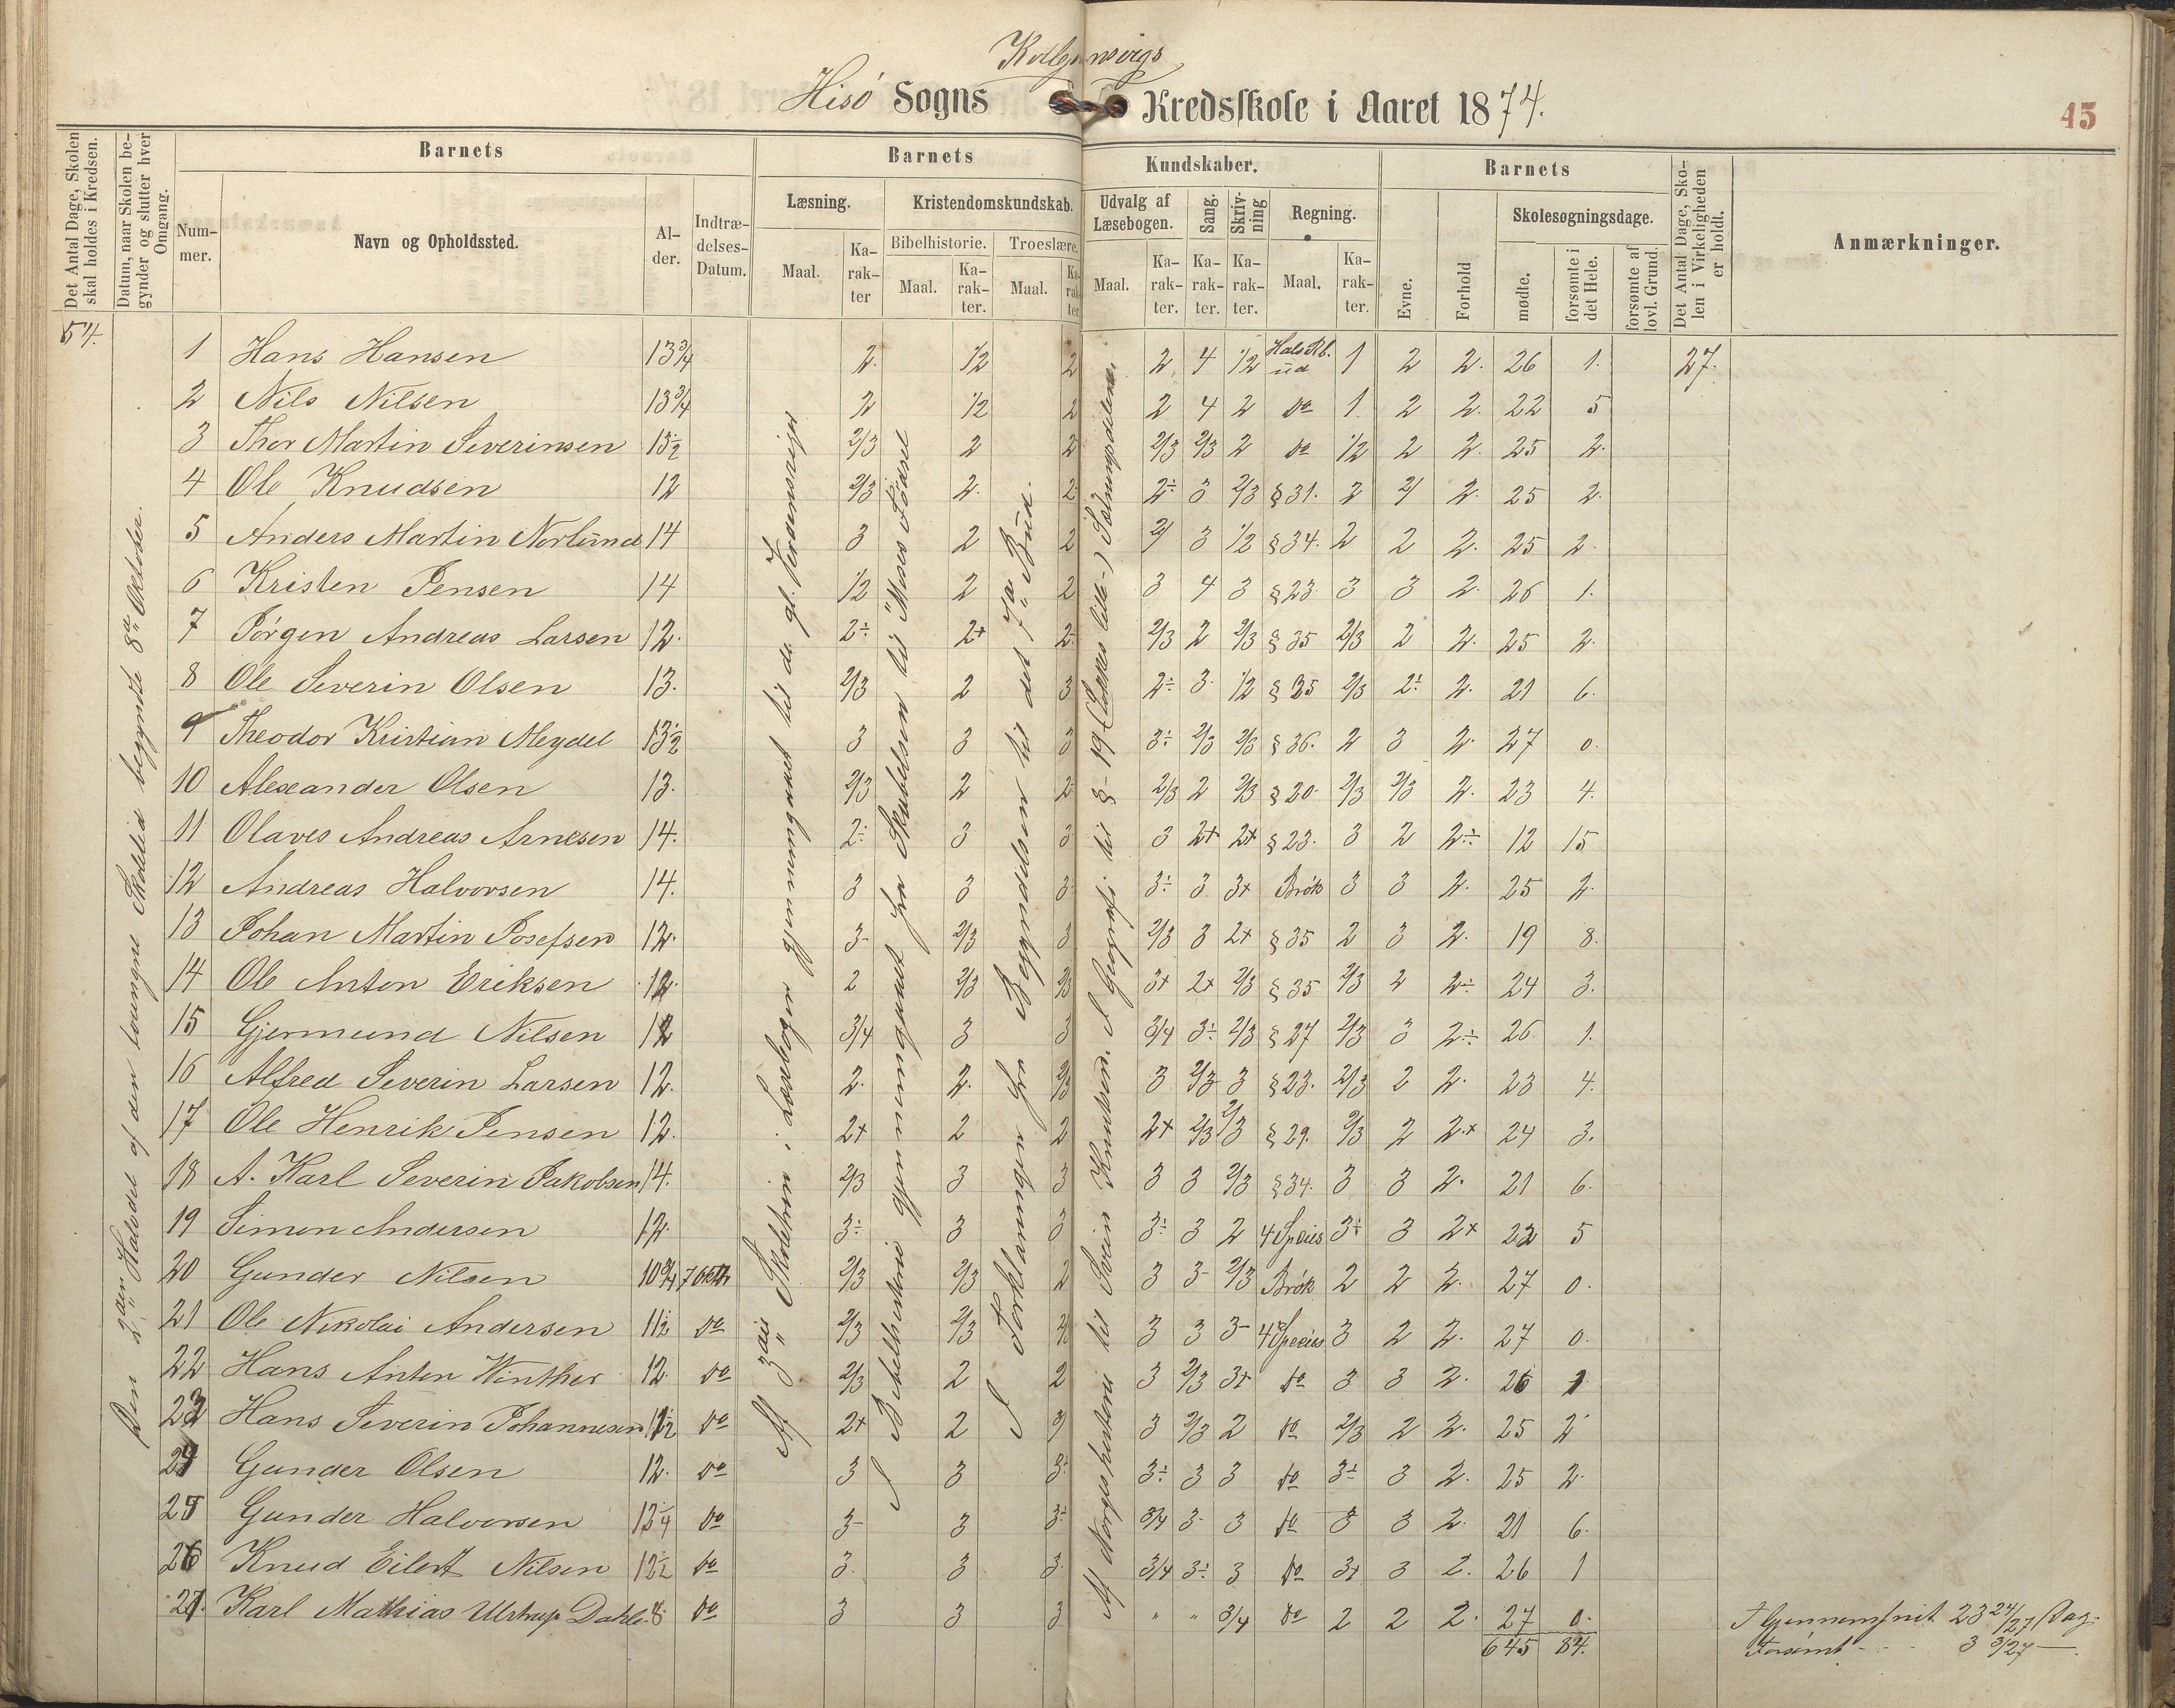 Kolbjønsvigs
Hisö Sogns Kredsskole i Aaret 1874.
45
Det Antal Dage, Skolen skal holdes i Kredsen.
Datum, naar Skolen begynder og slutter hver Omgang.
Barnets
Nummer.
Navn og Opholdssted.
Alder.
Indtrædelses-Datum.
Barnets Kundskaber.
Læsning.
Maal.
Karakter
Kristendomskundskab.
Bibelhistorie.
Maal.
Karakter.
Troeslære.
Maal.
Karakter
Udvalg af Læsebogen.
Maal.
Karakter.
Sang.
Karakter.
Skrivning
Karakter.
Regning.
Maal.
Karakter.
Barnets
Evne.
Forhold
Skolesøgningsdage.
mødte.
forsømte i det Hele.
forsømte af lovl. Grund.
Det Antal Dage, Skolen i Virkeligheden er holdt.
Anmærkninger.
54.
Den 2den Halvdel af den tvungne Skoletid begyndte 8de October.
Af 3die Skoletrin i Læsebogen gjennemgaaet til de gl.
I Bibelhistorie gjennemgaaet fra Skabelsen til "Moses Fødsel
I Forklaringen fra Begyndelsen til det 7de Bud.
Af Norgeshistorie til Svein Knutsen. I Geografi til § 19 (
1 Hans Hansen 13 3/4 2. 1/2 2 2 4 1/2 Hals Rb. ud 1 2 2. 26 1. 27.
2 Nils Nilsen 13 3/4 2 1/2 2 2 4 2 do 1 2 2. 22 5
3 Thor Martin Severinsen 13 1/2 2/3 2 2 2/3 2/3 2 do 1/2 2 2. 25 2.
4 Ole Knudsen 12 2/3 2. 2 2÷ 3 2/3 § 31. 2 2/ 2. 25 2.
5 Anders Martin Norlund 14 3 2 2 2/ 3 1/2 § 34. 2 2 2. 25 2.
6 Kristen Jensen 14 1/2 2 2 3 4 3 § 23. 3 3 2. 26 1.
7 Jørgen Andreas Larsen 12. 2÷ 2+ 2÷ 2/3 2 2/3 § 35 2/3 2 2. 25 2.
8 Ole Severin Olsen 13. 2/3 2 3 2÷ 3. 1/2 § 35 2/3 2÷ 2. 21 6.
9 Theodor Kristian Meydel 13 1/2 3 3 3 3÷ 2/3 2/3 § 36. 2 3 2. 27 0.
10 Alexander Olsen 13. 2/3 2 2 2/3 2 2/3 § 20. 2/3 2/3 2. 23 4.
11 Olaves Andreas Arnesen 14. 2÷ 3 3 3 2+ 2+ § 23. 3 2 2÷ 12 15
12 Andreas Halvorsen 14. 3 3 3 3÷ 3 3+ Brök 3 3 2. 25 2.
13 Johan Martin Josefsen 12. 3- 2/3 3 2/3 3 2+ § 35 2 3 2. 19 8.
14 Ole Anton Eriksen 12. 2 2/3 2/3 3+ 2+ 2/3 § 35 2/3 2 2÷ 24 3.
15 Gjermund Nilsen 12 3/4 3 3 3/4 3÷ 2/3 § 27 2/3 3 2÷ 26 1.
16 Alfred Severin Larsen 12. 2. 2. 2/3 3 2/3 3 § 23. 2/3 2 2. 23 4.
17 Ole Henrik Jensen 12. 2+ 2 2 2+ 2/3 2/3 § 29. 2/3 2 2.+ 24 3.
18 A. Karl Severin Jakobsen 14. 2/3 3 3 3 3 2/3 § 34. 3 3 2. 21 6.
19 Simon Andersen 12. 3÷ 3 3 3÷ 3 2 4 Species 3÷ 3 2+ 22 5
20 Gunder Nilsen 10 3/4 7 Oktbr 2/3 2/3 2 3 3- 2/3 Brök 2 2 2. 27 0.
21 Ole Nikolai Andersen 11 1/2 do 2/3 2/3 2/3 3 3 3- 4 Species 3 2 2. 27 0.
22 Hans Anton Winther 12. do 2/3 2 2 3 2/3 3+ do 3 3 2. 26 1.
23 Hans Severin Johannesen 12 1/2 do 2+ 2 2/ 3 2/3 2 do 2/3 2 2. 25 2
24 Gunder Olsen 12. do 3 3 3÷ 3÷ 3 3 do 3÷ 3 2. 25 2.
25 Gunder Halvorsen 13 1/4 do 3- 3 3÷ 3/4 3- 3 do 3 3 2. 21 6.
26 Knud Eilert Nilsen 12 1/2 do 3. 3 3. 3/4 3÷ 3 do 3+ 3 2. 26 1
27. Karl Mathias Ulstrup Dahle 8. do 3 3 3 " " 3/4 do 2 2 2. 27 0.
645 84.
I Gjennemsnit 23 24/27 Dag.
Forsömt - - - 3 3/27 —